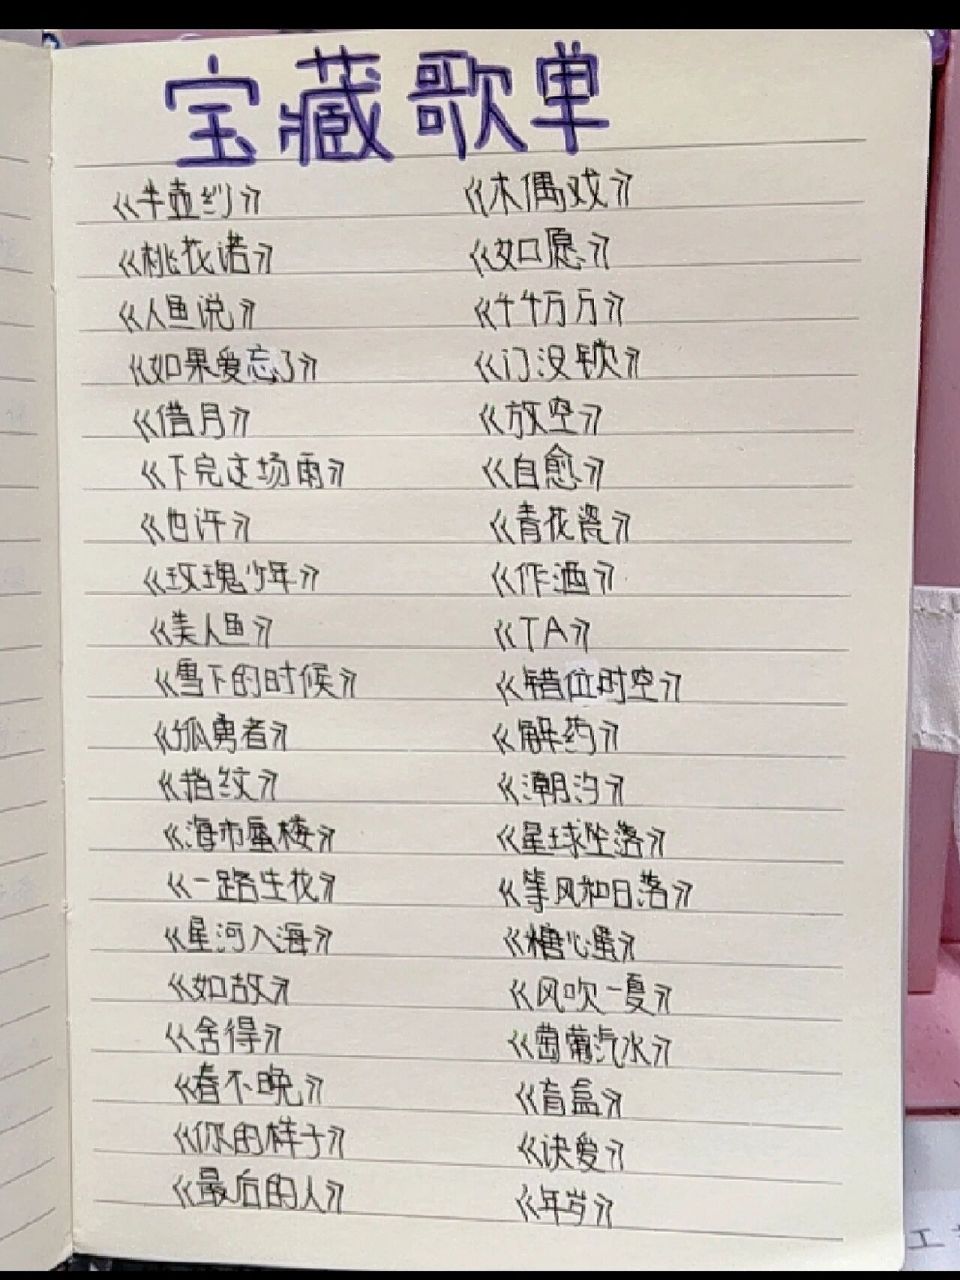 宝藏歌单
《半壶纱》
《桃花诺》
《人鱼说》
《如果爱忘了》
《借月》
《下完这场雨》
《也许》
《玫瑰少年》
《美人鱼》
《雪下的时候》
《孤勇者》
《指纹》
《海市蜃楼》
《一路生花》
《星河入海》
《如故》
《舍得》
《春不晚》
《你的样子》
《最后的人》
《木偶戏》
《如愿》
《千千万万》
《门没锁》
《放空》
《自愈》
《青花瓷》
《作酒》
《TA》
《错位时空》
《解药》
《潮汐》
《星球坠落》
《等风和日落》
《糖心蛋》
《风吹一夏》
《葡萄汽水》
《盲盒》
《诀爱》
《年岁》
工